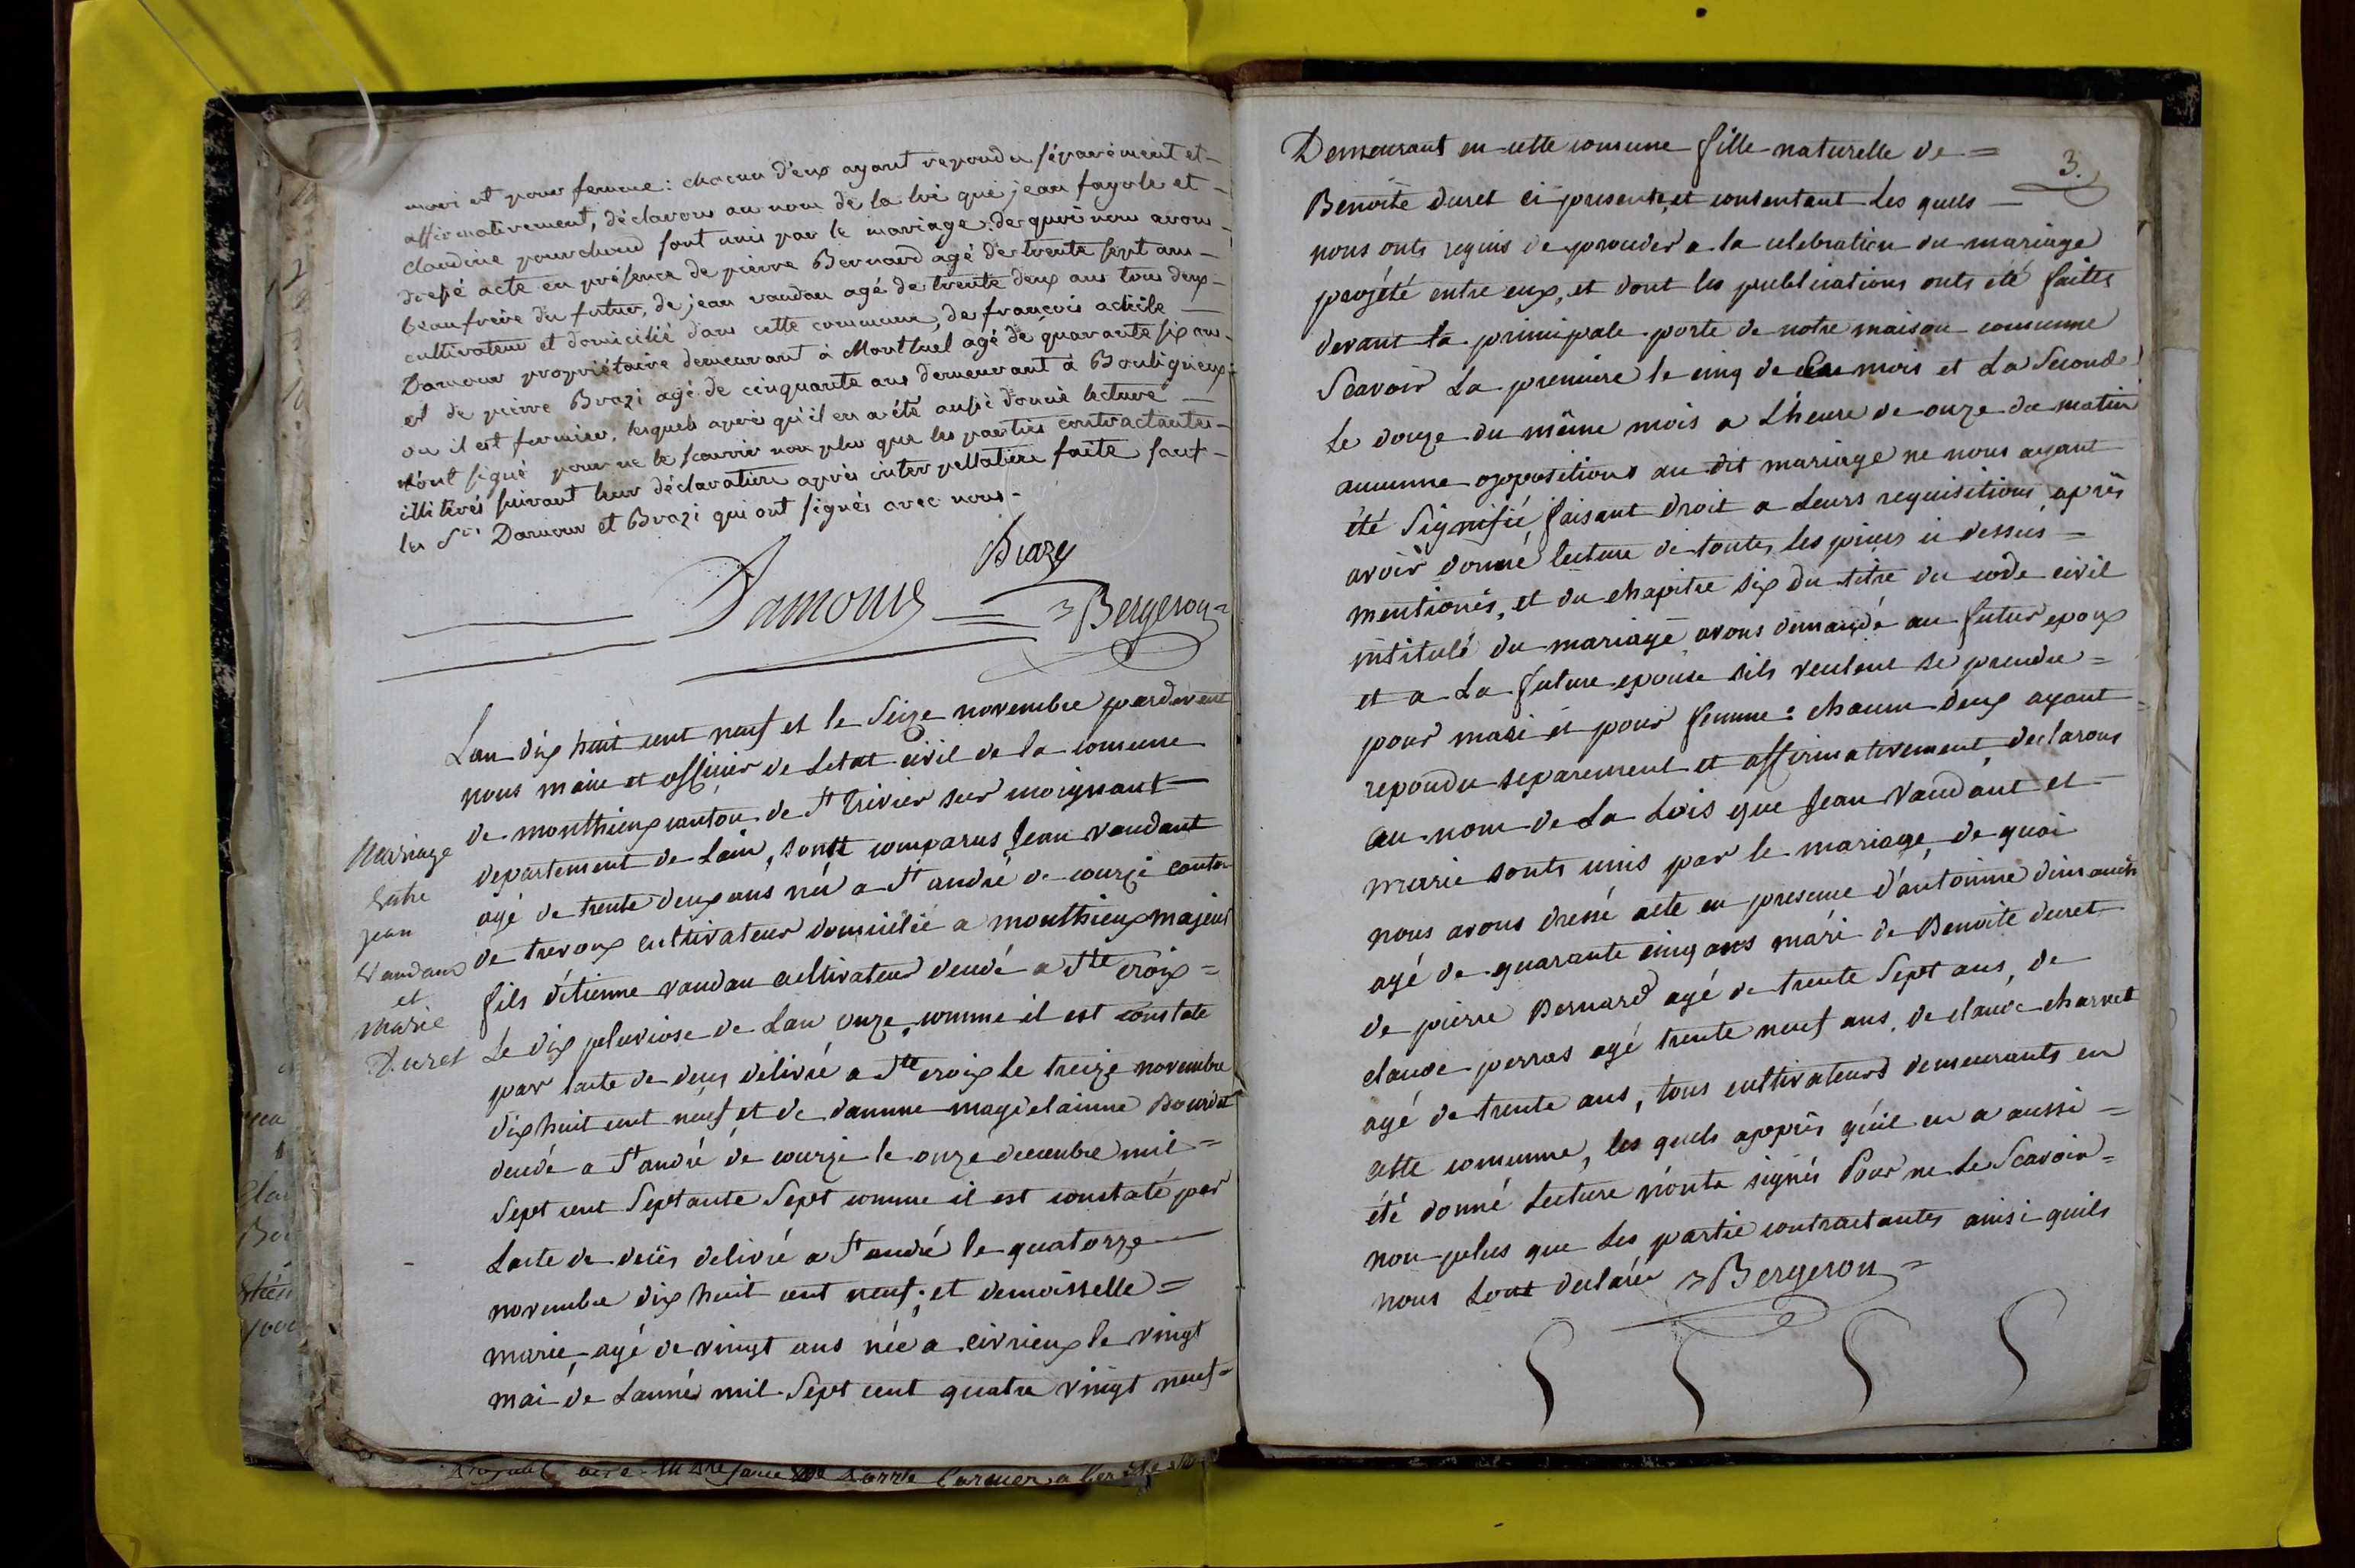 mari et pour femme : chacun d'eux ayant repondu séparément et
affirmativement, déclarons au nom de la loi que jean fayole et
claudine pourchoud sont unis par le mariage : de quoi nous avons
dressé acte en présence de pierre Bernard agé de trente sept ans
beaufrère du futur, de jean vaudan agé de trente deux ans tous deux
cultivateur et domicilié dans cette commune, de françois achile
Damour propriétaire demeurant à Montluel agé de quarante six ans
et de pierre Brazi agé de cinquante ans demeurant à Bouligneux
ou il est fermier, lesquels après qu'il en a été aussi donné lecture
n'ont signé pour ne le scavoir non plus que les parties contractantes
illitérés suivant leur déclaration après interpellation faite sauf
les Srs Damour et Brazi qui ont signés avec nous
Brazy
Damour
Bergeron
Lan dix huit cent neuf et le Seize novembre pardevant
nous maire et officier de Letat civil de la comune
de monthieux canton de St trivier sur moignant
departement de Lain, sontt comparus Jean vaudant
agé de trente deux ans née a St andré de courzi canton
de trevoux cultivateur domicilié a monthieux majeur
fils d'étienne vaudan cultivateur dcudé a Ste croix =
Le dix pluviose de Lan onze, comme il est constate
par lacte de decés délivré a Ste croix le treize novembre
dix huit cent neuf et de damme magdelainne Bourdat
decudé a St andré de courzi le onze decembre mil =
Sept cent Septante Sept comme il est constaté par
Lacte de decés delivré a St andré le quatorze
novembre dix huit cent neuf ; et demoisselle =
marie, agé de vingt ans née a civrieux le vingt
mai de Lannés mil Sept cent quatre vingt neuf =
Mariage
Entre
jean
Vaudans
et
Marie
Duret
3.
Demeurant en cette comune fille naturelle de =
Benoite duret ci presente, et consentant Les quels
nous onts requis de proceder a la celebration du mariage
projété entre eux, et dont les publications onts été faites
devant la principale porte de notre maison comunne
Scavoir La premiere le cinq de ce mois et La Seconde
Le douze du même mois a L'heure de onze du matin
aucunne oppositions au dit mariage ne nous ayant
été Signifié, faisant droit a Leurs requisitions après
avoir donné lecture de toutes les pieces ci dessus =
mentionés, et du chapitre six du titre du code civil
intitulé du mariage avons demandé au futur epoux
et a La future epouse sils veulent se prendre =
pour mari et pour femme : chacun deux ayant
repondu separement et affirmativement, declarons
au nom de La Lois que Jean Vaudant et
marie sonts unis par le mariage, de quoi
nous avons dressé acte en presence d'antoinne dimanch
agé de quarante cinq ans mari de Benoite duret
de pierre Bernard agé de trente Sept ans, de
claude perras agé trente neuf ans, de claude charvet
agé de trente ans, tous cultivateurs demeurants en
cette comunne, les quels apprès qu'il en a aussi =
été donné Lecture n'onts signés Pour ne Le Scavoir =
non plus que Les partie contractantes ainsi quils
nous Lont declarér Bergeron